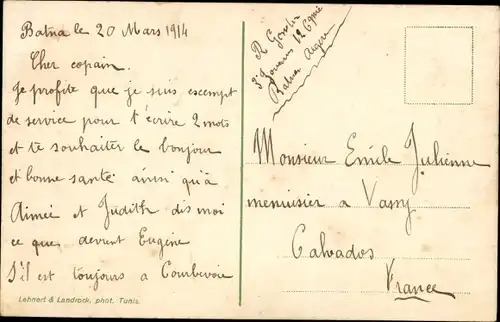 Batna le 20 Mars 1914
Cher copain.
Je profite que je suis escempt
de service pour t'écrire 2 mots
et te souhaiter le bonjour
et bonne santé ainsi qu'à
Aimée et Judith dis moi
ce que devient Eugène
S'il est toujours a Courbevoie
Lehnert & Landrock, phot. Tunis.
R
3e Zouaves 12e Cgnie
Batna
Monsieur Emile Julienne
menuisier a Vassy
Calvados
France